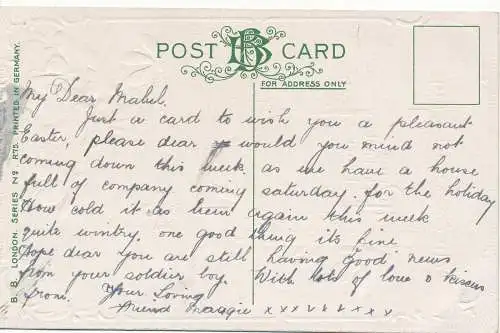 POST CARD
BB
FOR ADDRESS ONLY
B. B. LONDON. SERIES Nº R'15. PRINTED IN GERMANY.
My Dear Mabel.
Just a card to wish you a pleasant
Easter, please dear would you mind not
coming down this week as we have a house
full of company coming saturday. for the holiday
How cold it as been again this week
quite wintry. one good thing its fine
hope dear you are still having good news
from your soldier boy. With lots of love & kisses
from. Your Loving
friend Maggie x x x x x x x x